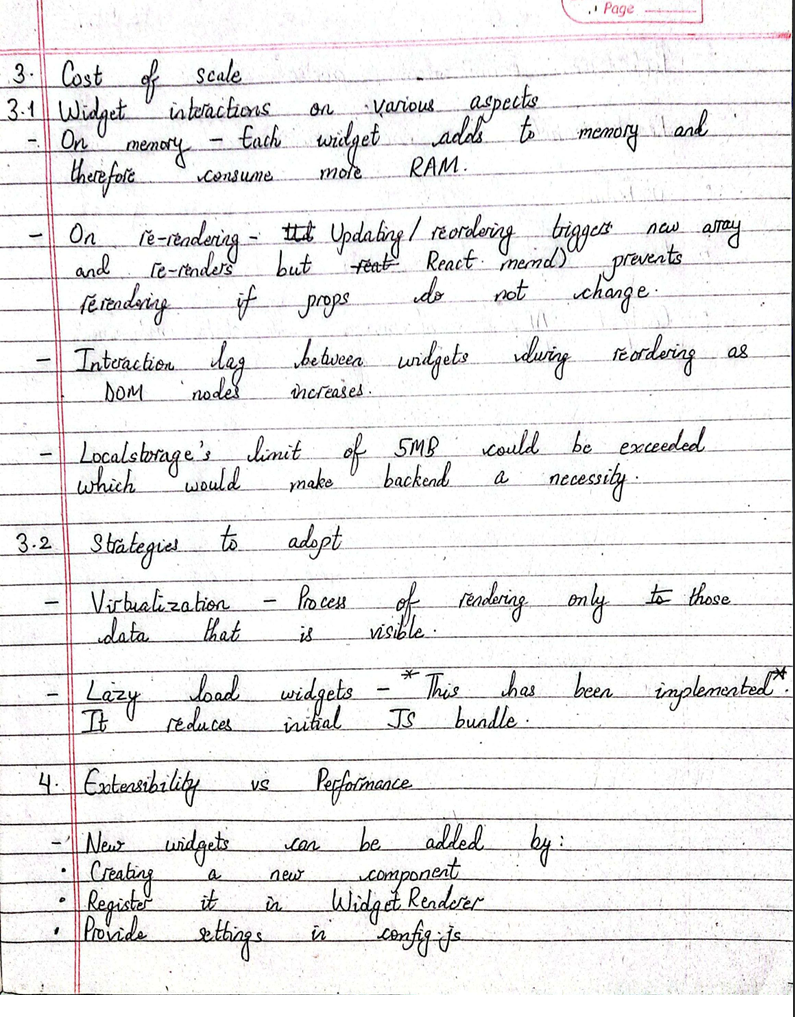 Page
3. Cost of scale
3.1 Widget interactions on various aspects
- On memory - Each widget adds to memory and
therefore consume more RAM.
- On re-rendering - Updating / reordering triggers new array
and re-renders but React.memo() prevents
rerendering if props do not change.
- Interaction lag between widgets during reordering as
DOM nodes increases.
- Localstorage's limit of 5MB could be exceeded
which would make backend a necessity.
3.2 Strategies to adopt
- Virtualization - Process of rendering only to those
data that is visible.
- Lazy load widgets - *This has been implemented*.
It reduces initial JS bundle.
4. Extensibility vs Performance
- New widgets can be added by:
• Creating a new component
• Register it in Widget Renderer
• Provide settings in config.js